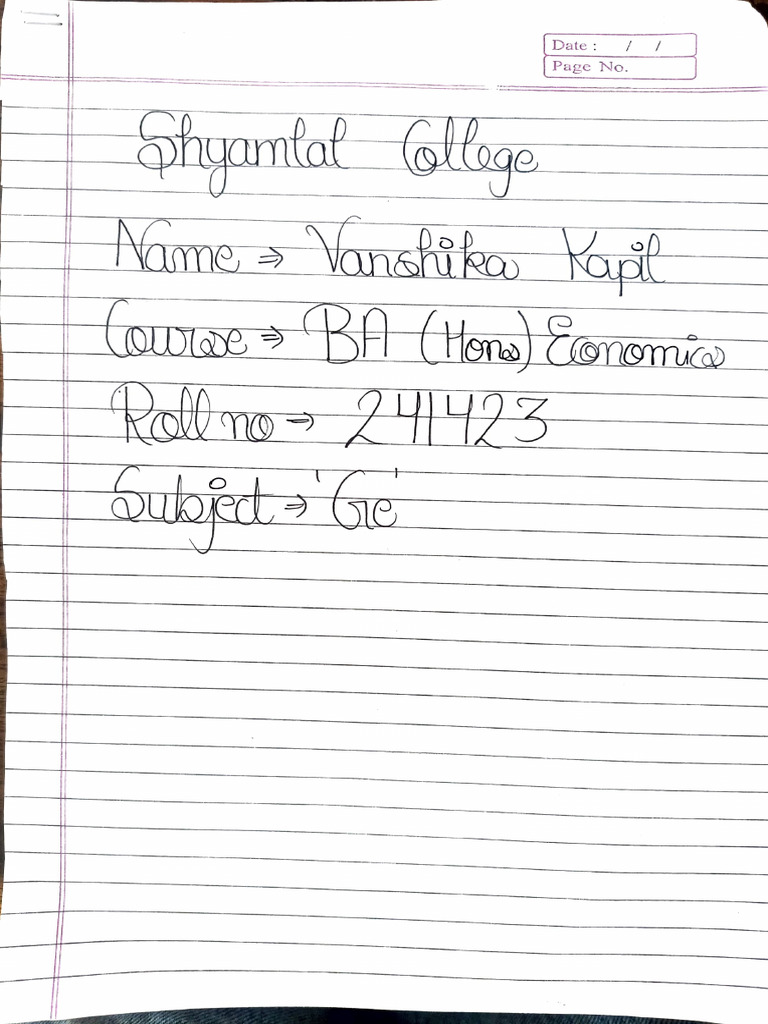 Date : / /
Page No.
Shyamlal College
Name ⇒ Vanshika Kapil
Course ⇒ BA (Hons) Economics
Roll no → 241423
Subject ⇒ 'Ge'